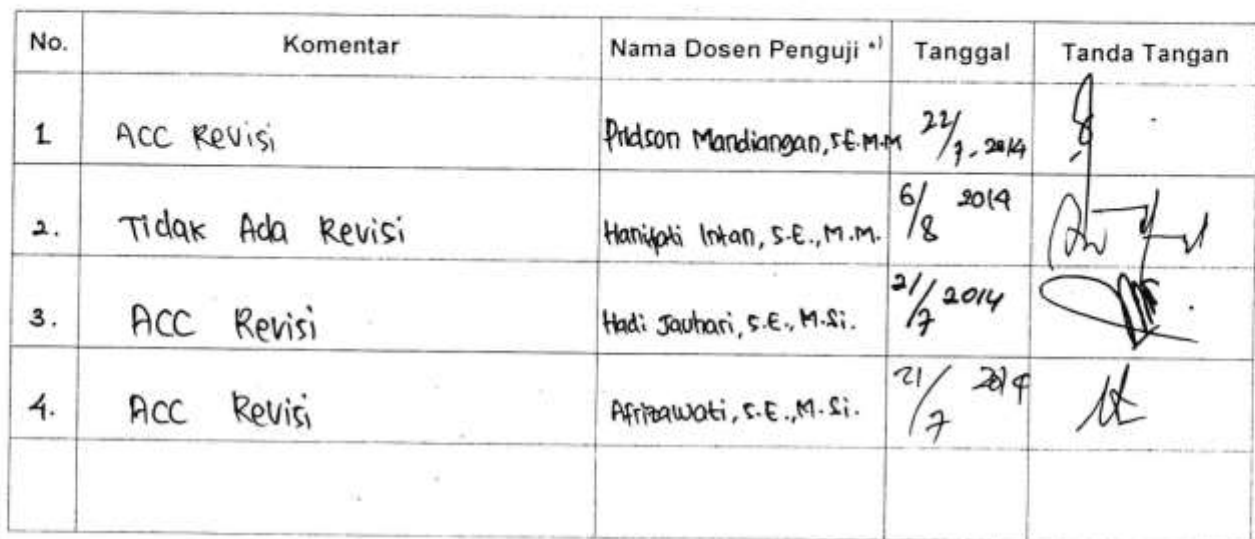 No. Komentar Nama Dosen Penguji *) Tanggal Tanda Tangan
1 ACC Revisi Pridson Mandiangan, S.E. M.M 22/7, 2014
2. Tidak Ada Revisi Intan, S.E., M.M. 6/8 2014
3. ACC Revisi Hadi Jauhari, S.E., M.Si. 21/7 2014
4. ACC Revisi Afrizawati, S.E., M.Si. 21/7 2014